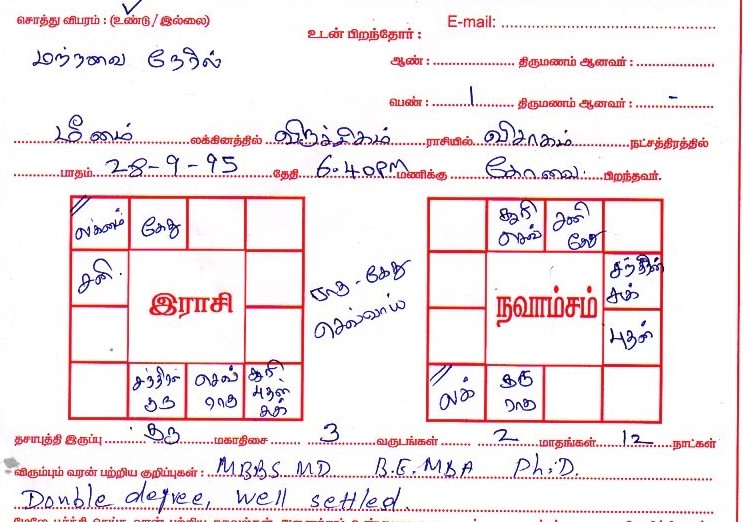 சொத்து விபரம் : (உண்டு / இல்லை)
E-mail:
உடன் பிறந்தோர் :
மற்றவை நேரில்
ஆண் : திருமணம் ஆனவர் :
பெண் : 1 திருமணம் ஆனவர் : -
மீனம் லக்கினத்தில் விருச்சிகம் ராசியில் விசாகம் நட்சத்திரத்தில்
பாதம் 28-9-95 தேதி 6.40PM மணிக்கு கோவை பிறந்தவர்.
லக்னம் கேது
சனி
இராசி
சந்திரன் குரு
செவ் ராகு
சூரி புதன் சுக்
ராகு - கேது
செவ்வாய்
சூரி செவ்
சனி கேது
சந்திரன் சுக்
நவாம்சம்
புதன்
லக்
குரு ராகு
தசாபுத்தி இருப்பு குரு மகாதிசை 3 வருடங்கள் 2 மாதங்கள் 12 நாட்கள்
விரும்பும் வரன் பற்றிய குறிப்புகள் : MBBS MD B.E. MBA Ph.D.
Double degree, well settled.